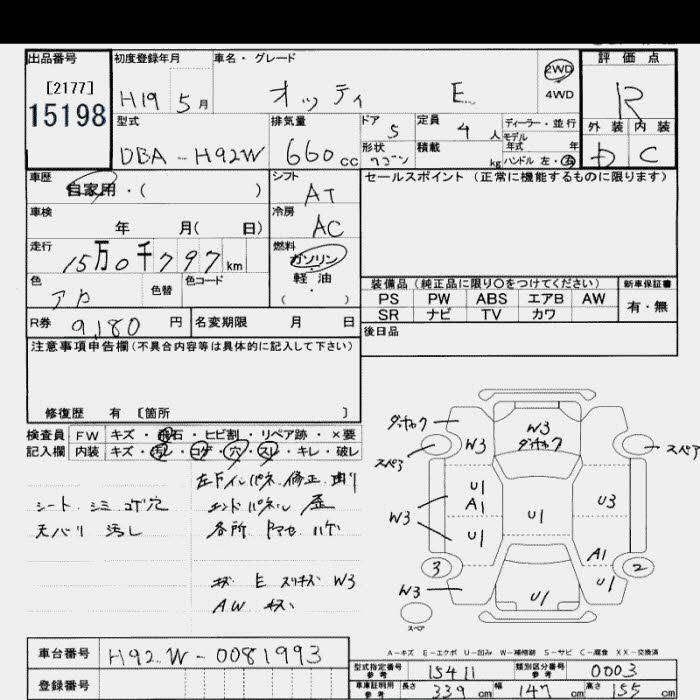 出品番号
[2177]
15198
初度登録年月
H19 5 月
車名・グレード
オッティ E
2WD
4WD
評価点
R
外装 内装
D C
型式
DBA-H92W
排気量
660 cc
ドア
5
形状
ワゴン
定員
4 人
積載
kg
ディーラー・並行
モデル
年式 年
ハンドル 左・右
車歴
自家用・( )
シフト
AT
セールスポイント (正常に機能するものに限ります)
車検
年 月( 日)
冷房
AC
走行
15万0千797 km
燃料
ガソリン
軽・油
( )
色
アカ
色替
色コード
装備品 (純正品に限り○をつけてください)
PS PW ABS エアB AW
SR ナビ TV カワ
新車保証書
有・無
R券
9,180 円
名変期限 月 日
後日品
注意事項申告欄(不具合内容等は具体的に記入して下さい)
修復歴 有 [箇所 ]
検査員 FW キズ・飛石・ヒビ割・リペア跡・×要
記入欄 内装 キズ・汚レ・コゲ・穴・スレ・キレ・破レ
シート シミ コゲ穴
天バリ 汚し
左下インパネ 修正 曲り
エンドパネル 歪
各所 ハゲ
キズ E スリキズ W3
AW キズ
ダイヤク
スペア
W3
W3
ダイヤク
スペア
W3
U1
A1
U1
U1
U3
A1
U1
3
2
W3
U1
スペア
A-キズ E-エクボ U-凹み W-補修跡 S-サビ C-腐食 XX-交換済
車台番号
H92W-0081993
登録番号
型式指定番号
参考
15411
類別区分番号
参考
0003
車庫証明用
参考
長さ 339 cm 幅 147 cm 高さ 155 cm